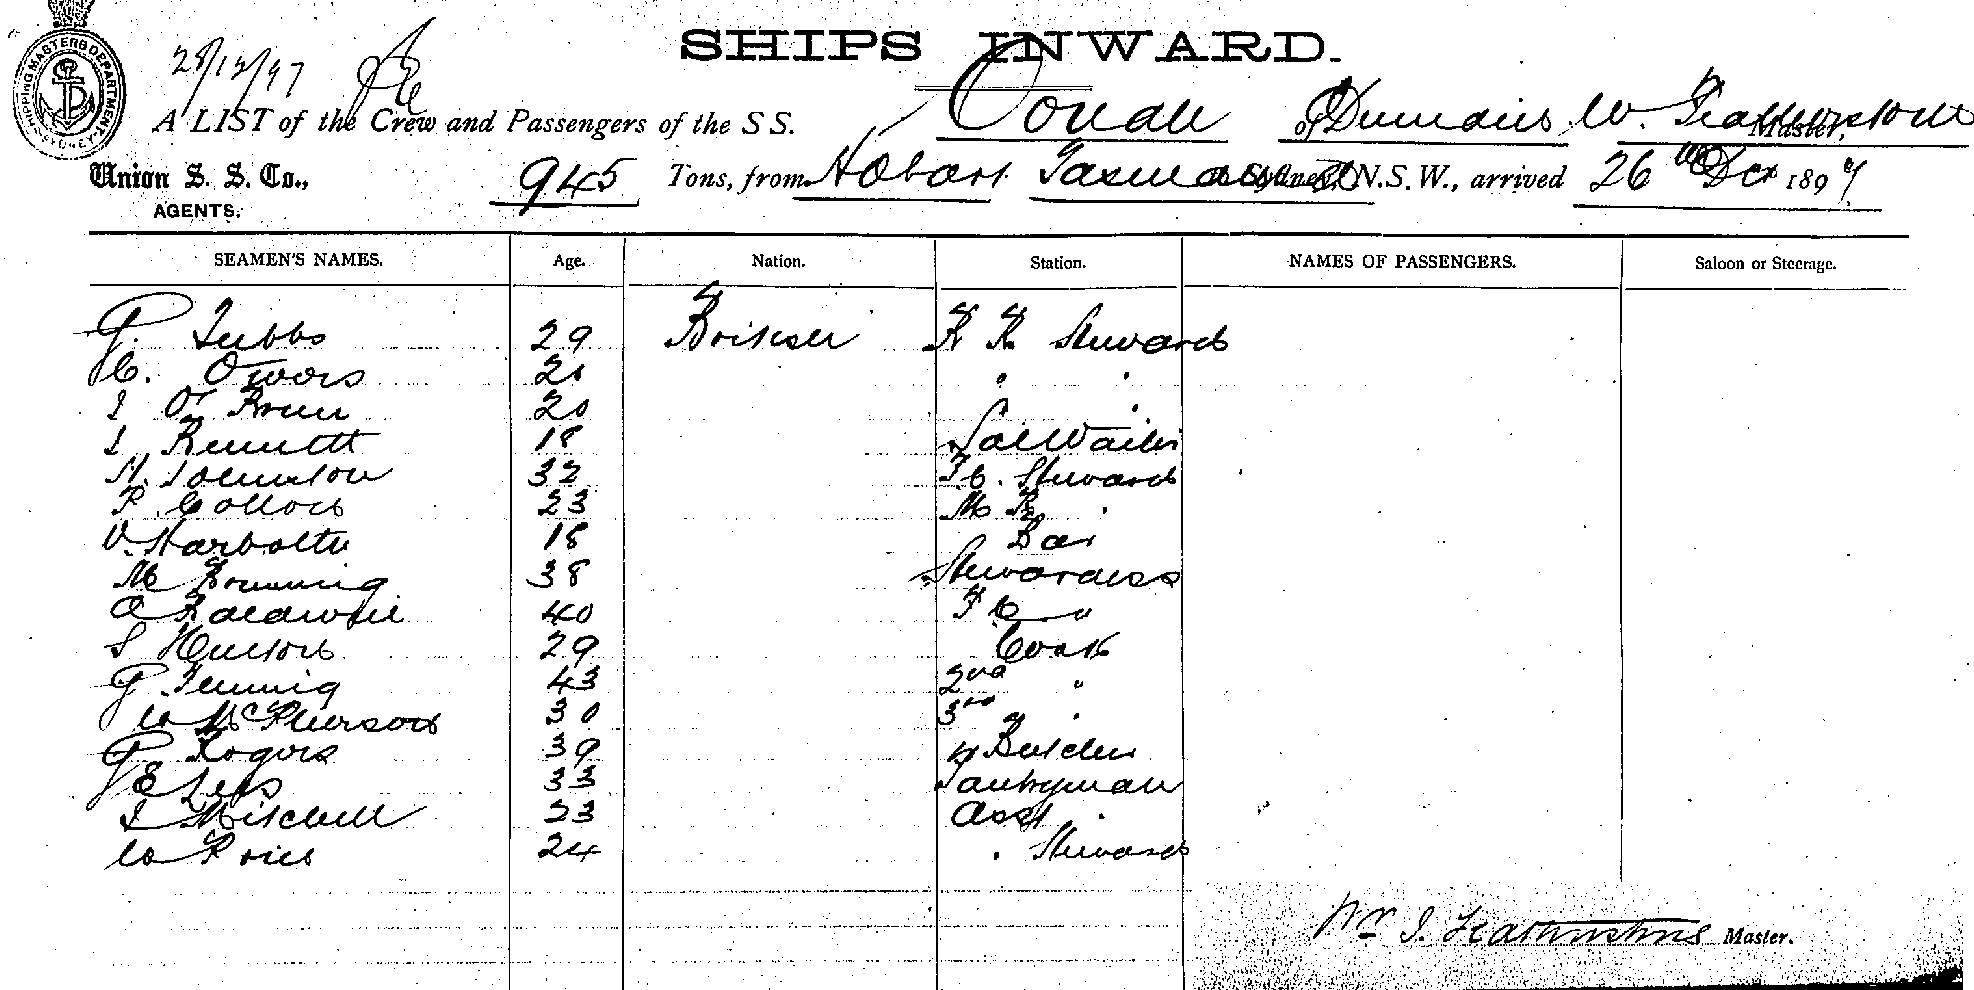 SHIPPING MASTERS DEPARTMENT SYDNEY
28/12/97
SHIPS INWARD.
A LIST of the Crew and Passengers of the S S. Oonah of Dunedin, W. Featherstone Master,
Union S. S. Co., AGENTS. 945 Tons, from Hobart Tasmania to Sydney, N.S.W., arrived 26th Dec 1897
SEAMEN'S NAMES. Age. Nation. Station. NAMES OF PASSENGERS. Saloon or Steerage.
G. Tubbs 29 British F R Steward
C. Owers 21 " "
20 "
J Bennett 18 Sal Waiter
H. Johnston 32 F C. Steward
P. Collors 23 M R "
V. Harbottle 18 Bar
M 38 Stewardess
A Baldwin 40 F C "
S Hustors 29 Cook
G Fleming 43 2nd "
W McPherson 30 3rd "
G Rogers 39 " Butcher
E Lees 33 Pantryman
J Mitchell 23 Asst "
W Price 24 " Steward
Wm J. Featherstone Master.